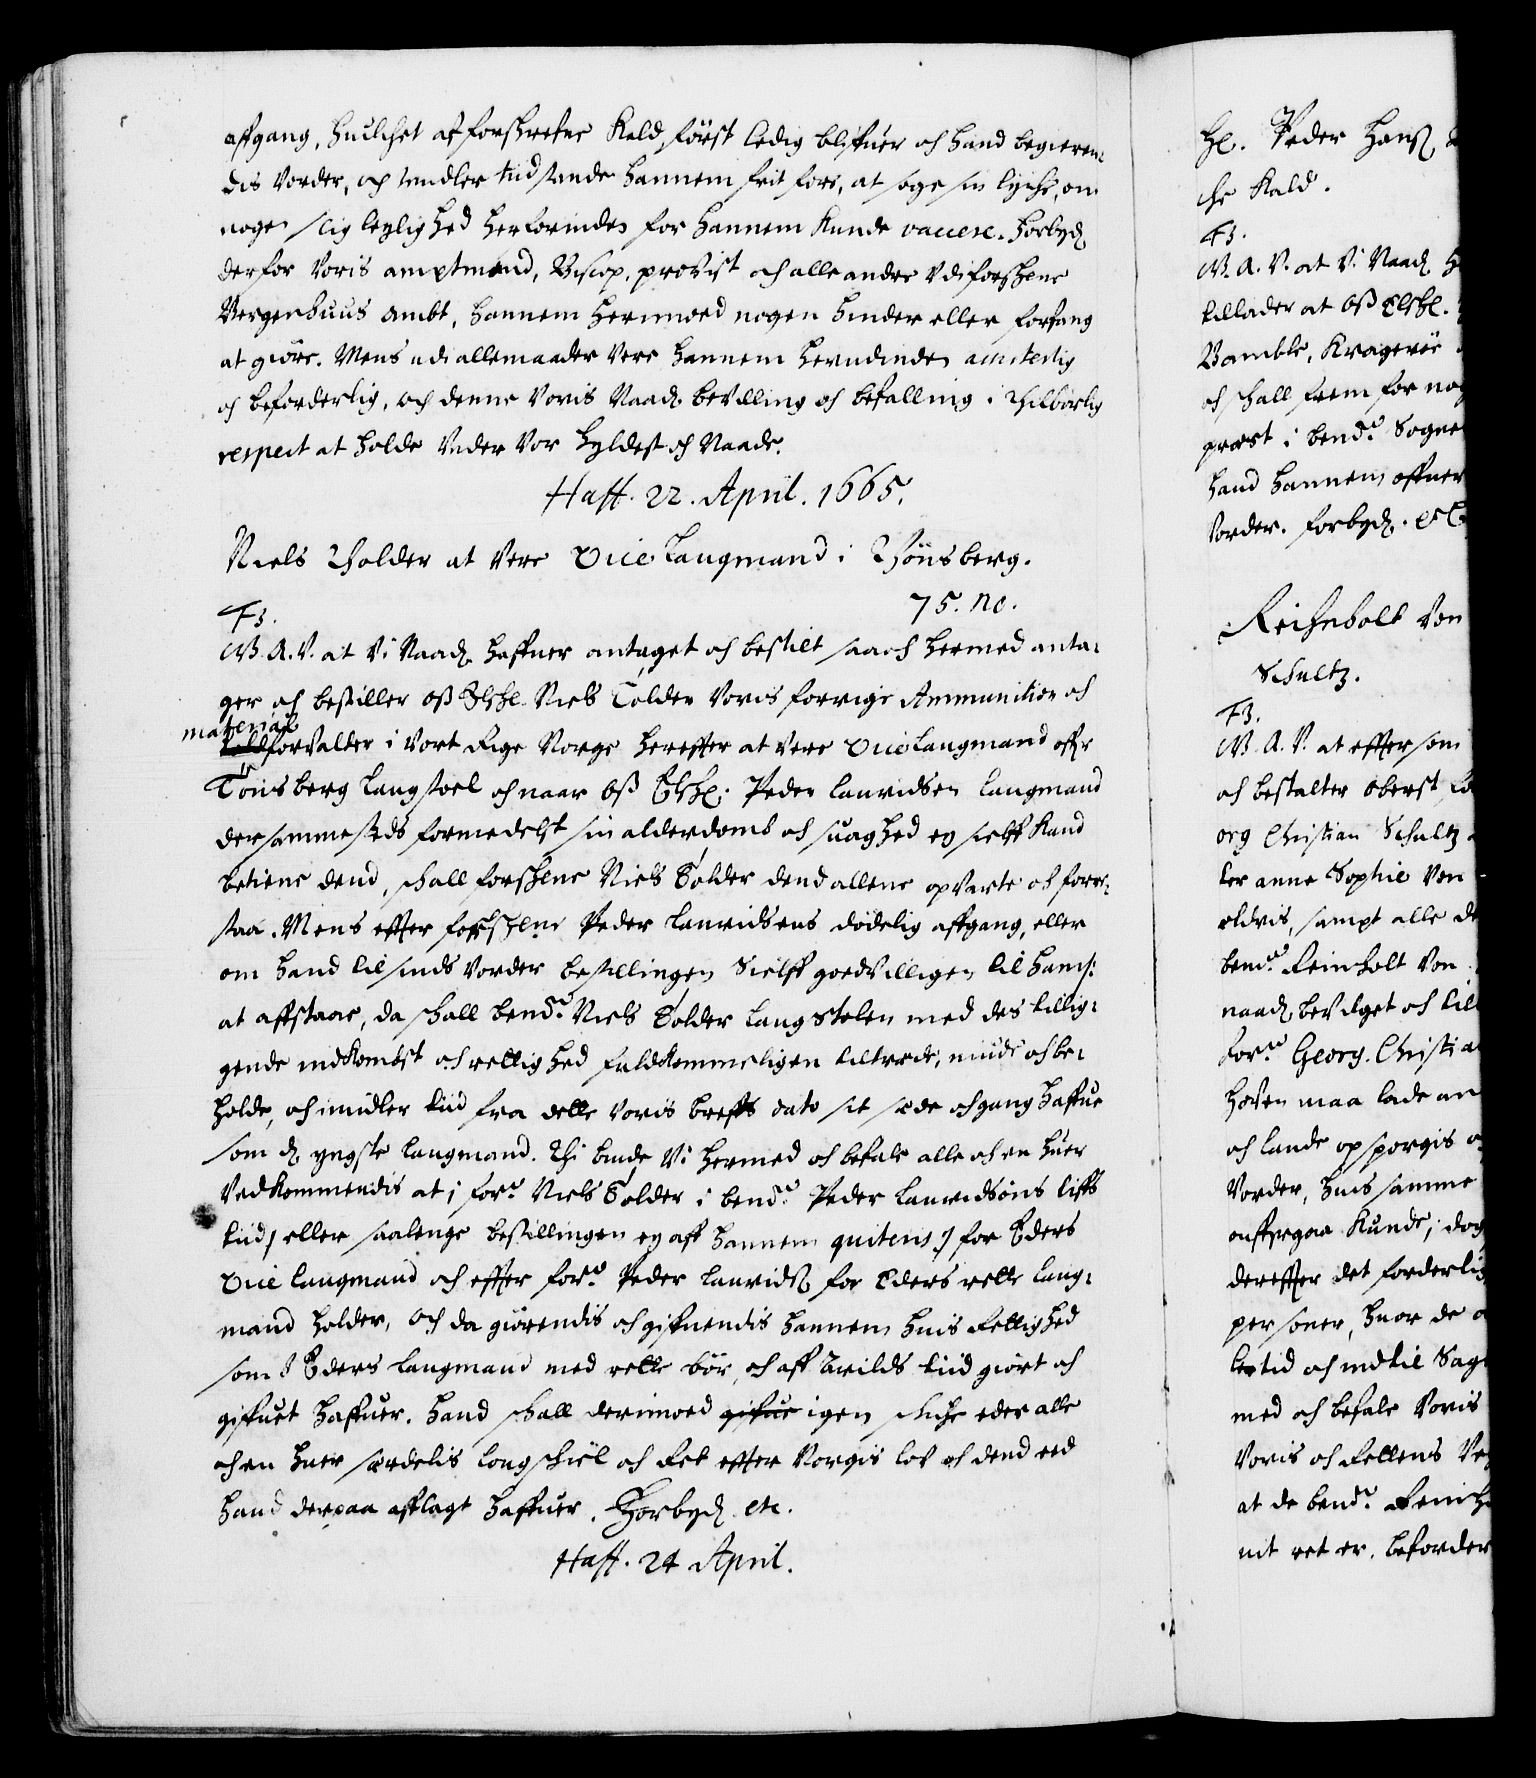 affgang, huilchet af forskrefne Kald først ledig blifuer och hand begieren-
dis vorder, och imidler tiid stande hannem frit fore, at søge sin lyche, om
nogen slig leylighed herforinden for hannem kunde vacere. Forbyd.
derfor voris amptmand, Biscop, provist och alle andre udi forschrne
Bergenhuus ambt, hannem herimoed nogen hinder eller forfang
at giøre. Mens udi alle maader vere hannem herudinden
och beforderlig, och denne voris Naad. bevilling och befalling i tilbørlig
respect at holde under vor hyldest och Naade.
Haff. 22. April. 1665.
Niels Tholder at vere Vice Laugmand i Thønsberg.
75. no.
F3.
W. A. V. at Vi Naad. haffuer antaget och bestilt saa och hermed anta-
ger och bestiller oß Elskl. Niels Tolder voris forrige Ammunition och
material
forvalter i vort Rige Norge hereffter at vere Vice Laugmand offr
Tønsberg Laugstoel och naar oß Elskl. Peder Lauridsen Laugmand
dersammesteds formedelst sin alderdomb och suaghed ey sielff kand
betiene dend, schall forschrne Niels Tolder dend allene opvarte och forre-
staa. Mens effter forschrne Peder Lauridsens dødelig affgang, eller
om hand til sinds vorder bestillingen sielff goedvilligen til ham
at affstaae, da schall bemd. Niels Tolder Laugstolen med des tillig-
gende indkombst och rettighed fuldkommeligen tiltræde, niude och be-
holde, och imidler tiid fra dette voris breffs dato sit sæde och gang haffue
som d. yngste Laugmand. Thi bede Vi hermed och befale alle och en huer
vedkommendis at i ford. Niels Tolder i bemd. Peder Lauridsøns liffs
tiid / eller saalenge bestillingen ey aff hannem quiteris / for Eders
Vice Laugmand och effter ford. Peder Lauridß. for Eders rette Laug-
mand holder, och da giørendis och gifuendis hannem huis rettighed
som I Eders Laugmand med rette bør, och aff Arilds tiid giørt och
gifuet haffuer. Hand schall derimoed gifue igen schiche eder alle
och en huer særdelis Lougschiel och Ret effter Norgis lov och dend eed
hand derpaa afflagt haffuer. Forbyd. etc.
Haff. 24 April.
Hl. Peder Hanß
che Kald.
F3.
W. A. V. at Vi Naad.
tillader at oß Elskl.
Bamble, Kragerøe
och schall frem for
præst i bemd. Sogne
hand hannem
vorder. Forbyd. etc
Reichholt Von
Schultz.
F3.
W. A. V. at effter som
och bestalter Oberst
org Christian Schultz
ter anne Sophie Von
eldvis, sampt alle de
bemd. Reinholt Von
naad. bevilget och till
ford. Georg. Christia
hoven maa lade an
och lande opsporgis
vorder, huis samme
kunde, dog
dereffter det forderli
personer, huor de
tid och indtil Sag
med och befale Voris
Voris och Rettens
at de bemd. Reinh
nit ret er, beforder